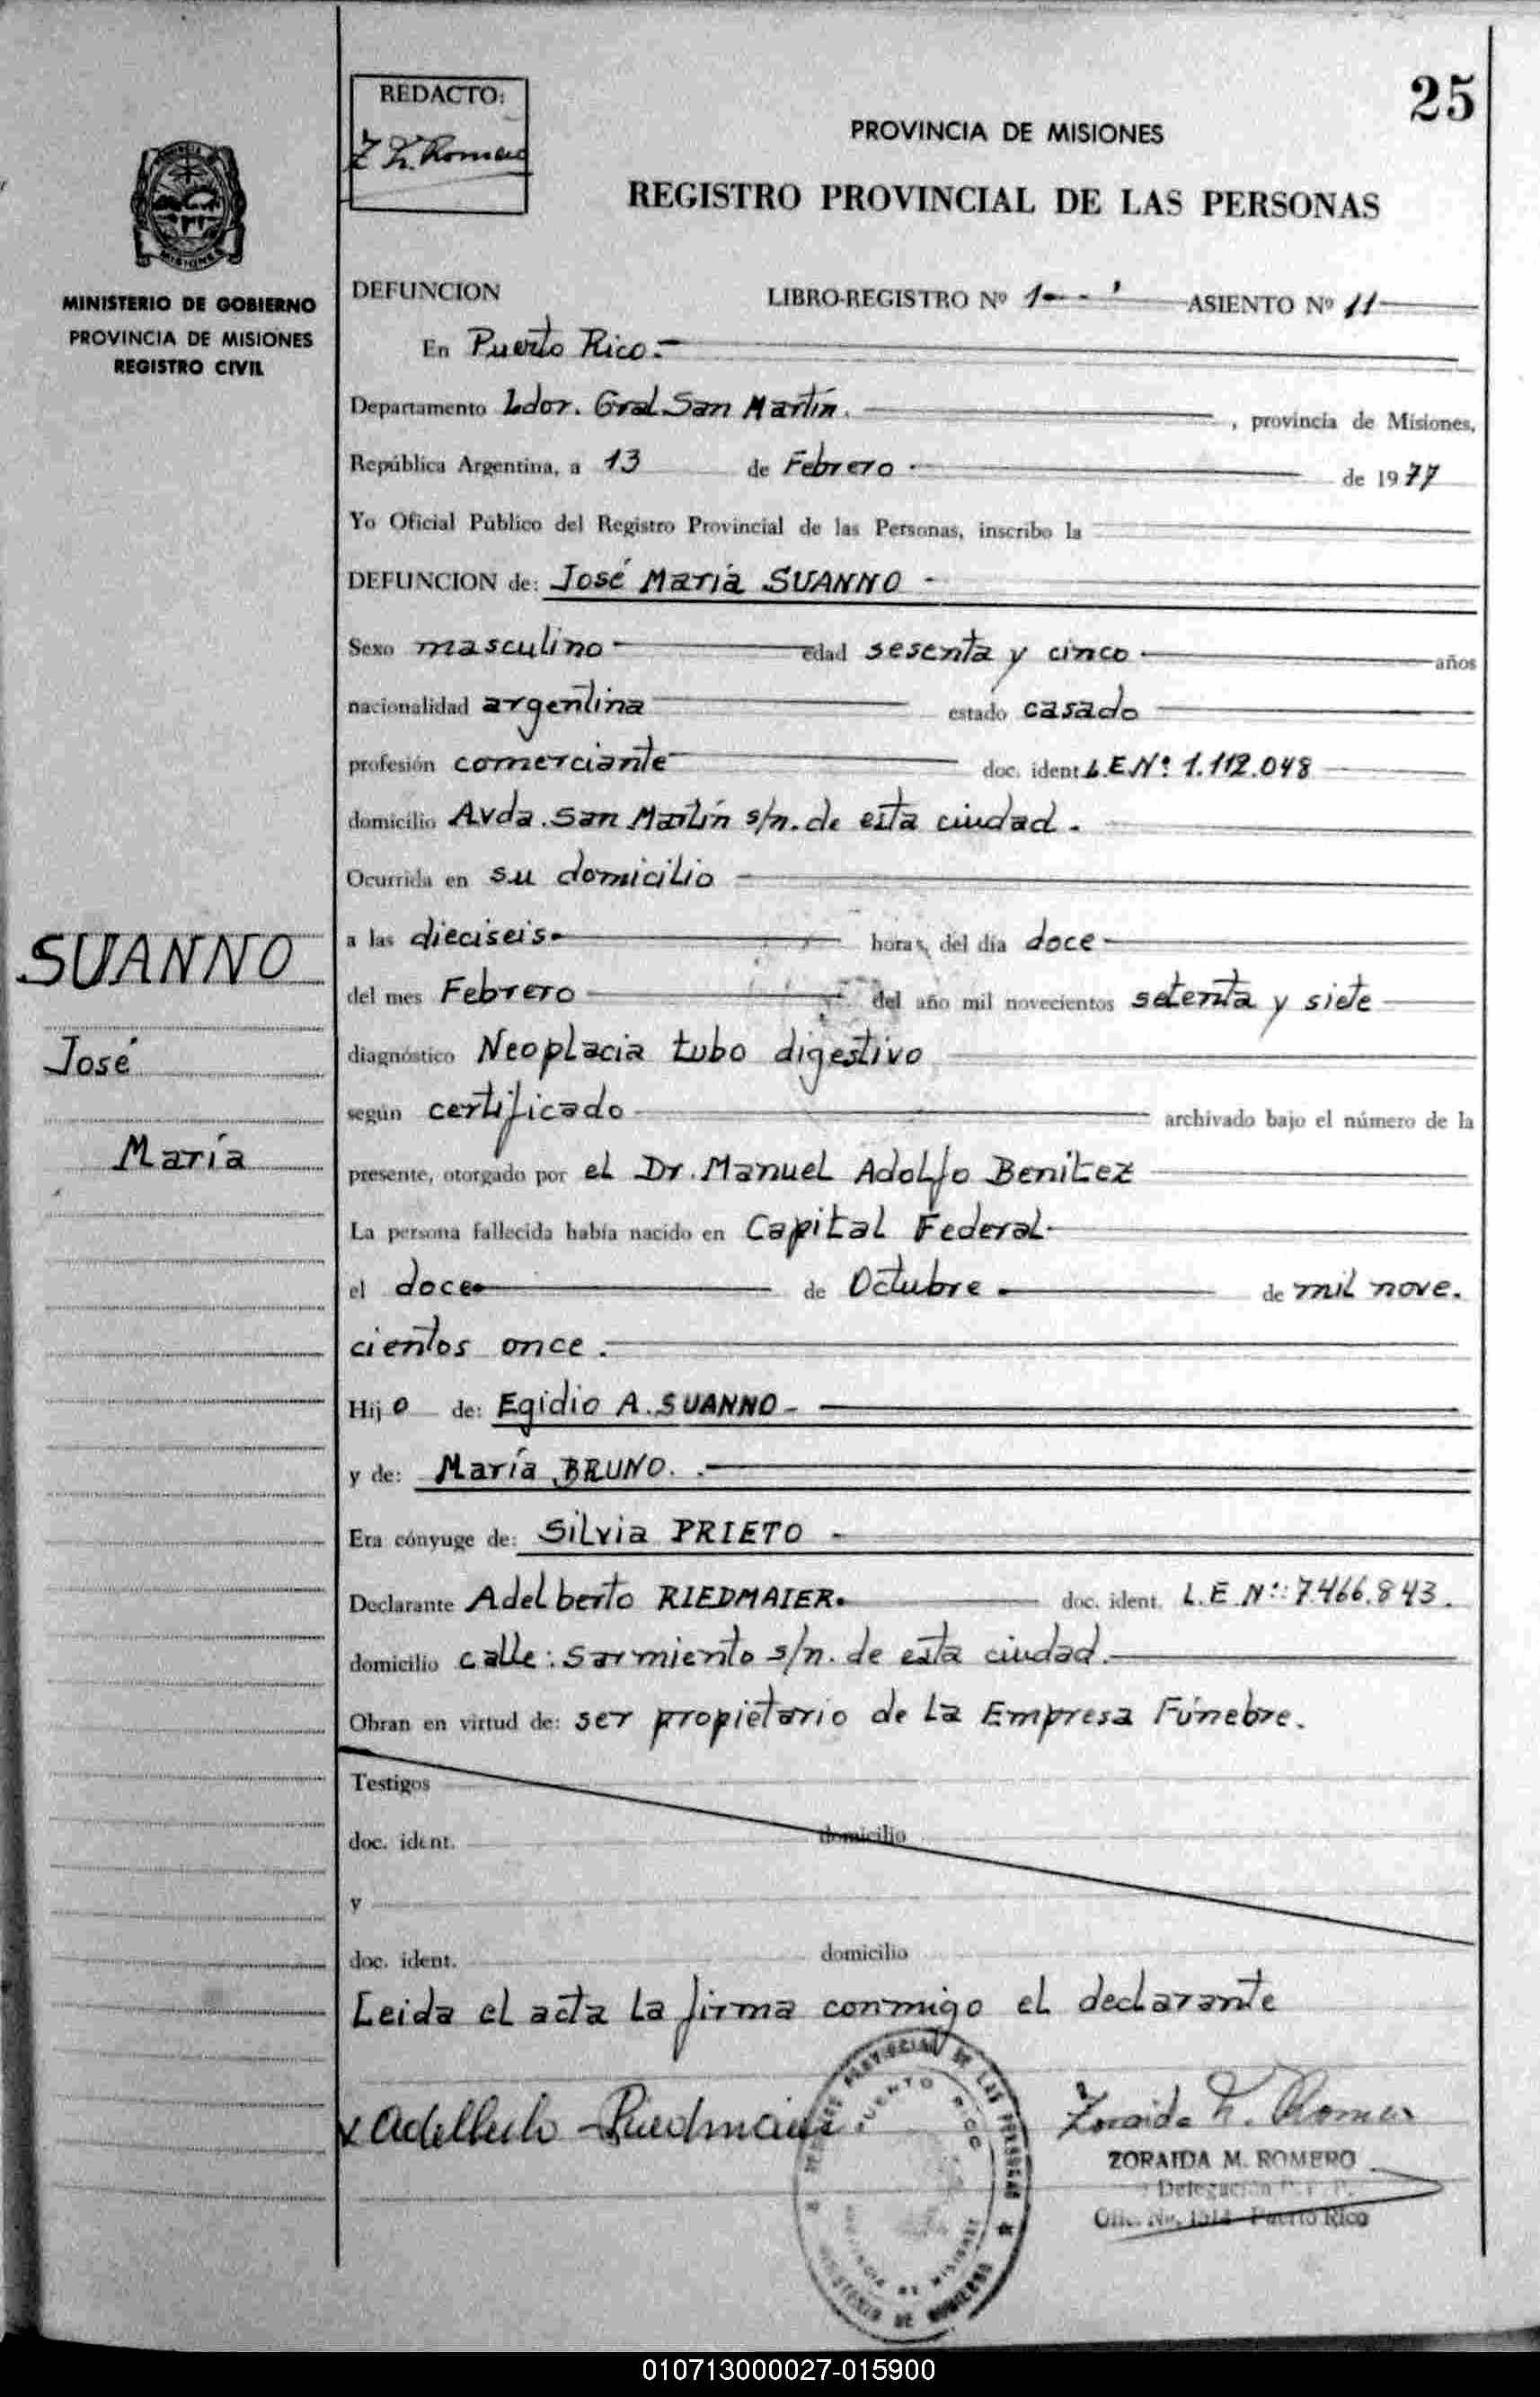 25
REDACTO:
Z. M. Romero
PROVINCIA DE MISIONES
REGISTRO PROVINCIAL DE LAS PERSONAS
MISIONES
MINISTERIO DE GOBIERNO
PROVINCIA DE MISIONES
REGISTRO CIVIL
DEFUNCION LIBRO-REGISTRO Nº 1 ASIENTO Nº 11
En Puerto Rico.-
Departamento Ldor. Gral San Martín. , provincia de Misiones,
República Argentina, a 13 de Febrero. de 1977
Yo Oficial Público del Registro Provincial de las Personas, inscribo la
DEFUNCION de: José María SUANNO -
Sexo masculino edad sesenta y cinco años
nacionalidad argentina estado casado
profesión comerciante doc. ident. L.E.Nº 1.112.048
domicilio Avda. San Martín s/n. de esta ciudad.
Ocurrida en su domicilio
a las dieciseis. horas, del día doce
del mes Febrero del año mil novecientos setenta y siete
diagnóstico Neoplacia tubo digestivo
según certificado archivado bajo el número de la
presente, otorgado por el Dr. Manuel Adolfo Benitez
La persona fallecida había nacido en Capital Federal.
el doce de Octubre. de mil nove.
cientos once.
Hijo de: Egidio A. SUANNO -
y de: María BRUNO.
Era cónyuge de: Silvia PRIETO -
Declarante Adelberto RIEDMAIER. doc. ident. L.E.Nº: 7.466.843.
domicilio calle: Sarmiento s/n. de esta ciudad.
Obran en virtud de: ser propietario de la Empresa Fúnebre.
Testigos
doc. ident. domicilio
y
doc. ident. domicilio
Leida el acta la firma conmigo el declarante
SUANNO
José
María
x Adelberto Riedmaier
Zoraida M. Romero
ZORAIDA M. ROMERO
Delegación
Ofic. No. 1514 Puerto Rico
PROVINCIAL DE LAS PERSONAS
PUERTO RICO
PROVINCIA DE MISIONES
MINISTERIO DE GOBIERNO
010713000027-015900